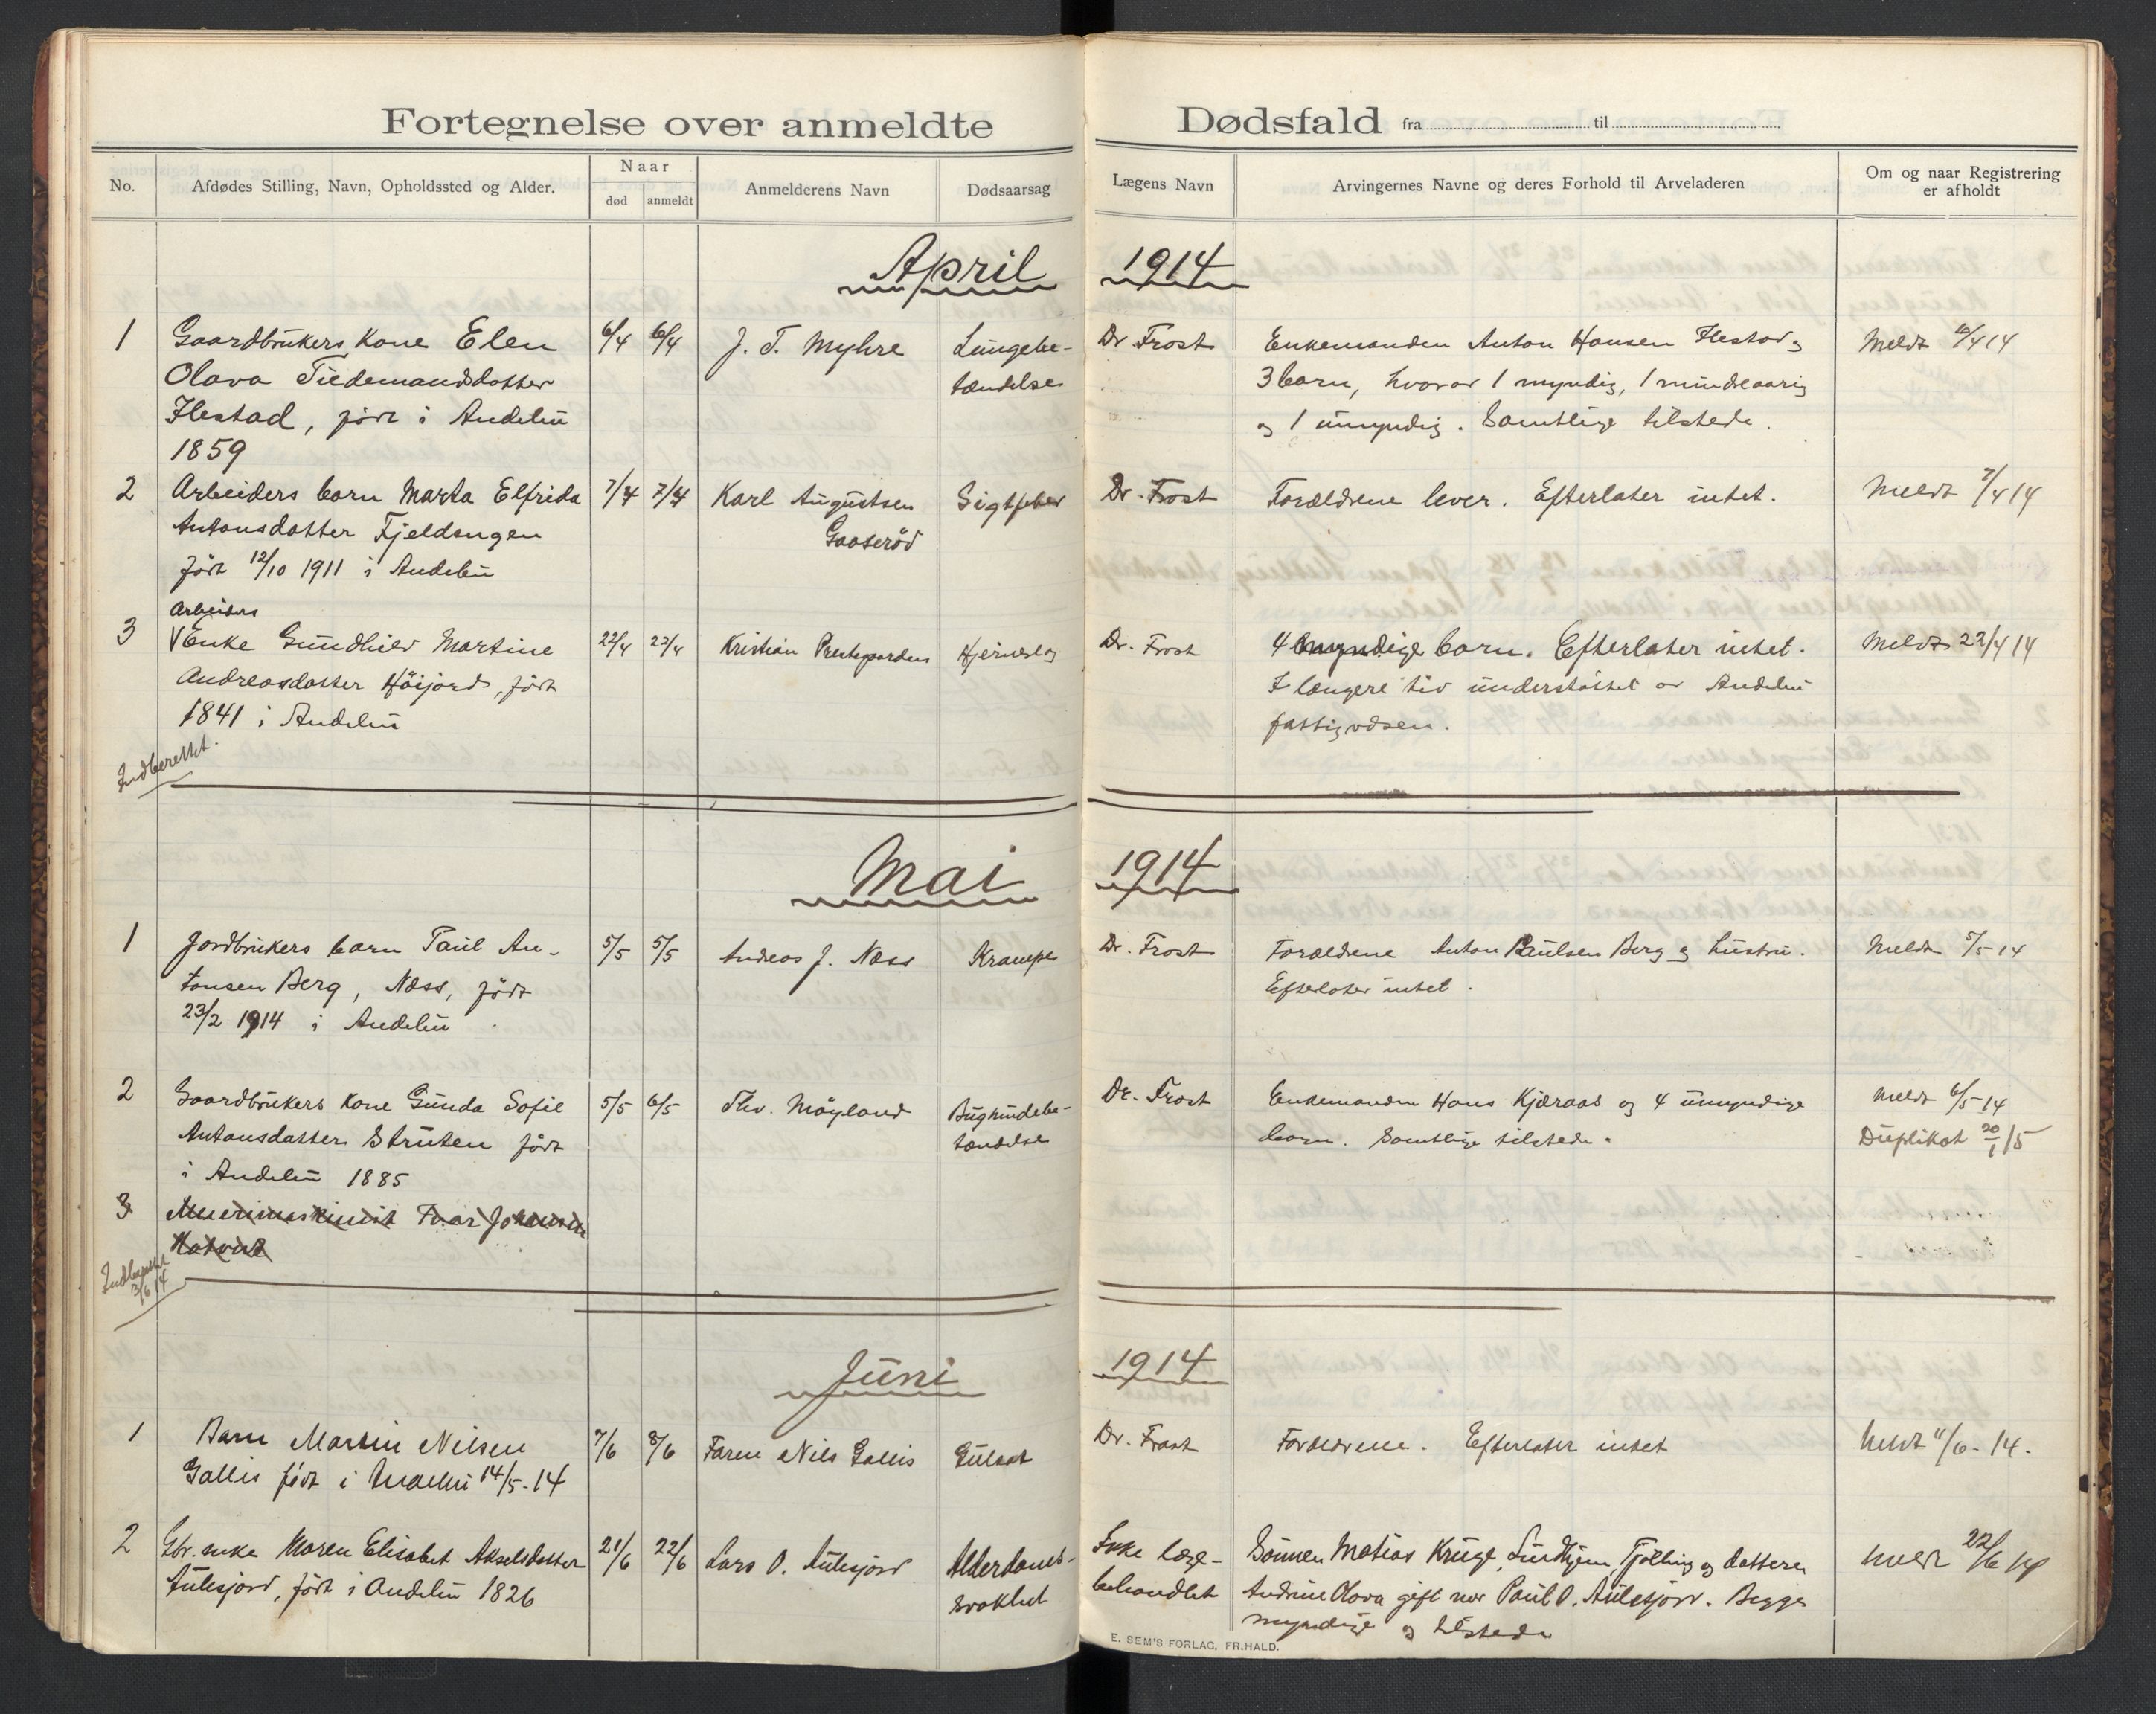 Fortegnelse over anmeldte Dødsfald fra til
No.
Afdødes Stilling, Navn, Opholdssted og Alder.
Naar
død
anmeldt
Anmelderens Navn
Dødsaarsag
Lægens Navn
Arvingernes Navne og deres Forhold til Arveladeren
Om og naar Registrering
er afholdt
April 1914
1 Gaardbrukers kone Elen
Olava Tiedemandsdatter
Ilestad, født i Andebu
1859
6/4 6/4
J. T. Myhre
Lungebe-
tændelse
Dr Frost
Enkemanden Anton Hansen Ilestad og
3 barn, hvorav 1 myndig, 1 mindreaarig
og 1 umyndig. Samtlige tilstede.
Meldt 6/4 14
2 Arbeiders barn Marta Elfrida
Antonsdatter Fjeldengen
født 12/10 1911 i Andebu
7/4 7/4
Karl Augustsen
Gaaserød
Gigtfeber
Dr. Frost
Forældrene lever. Efterlater intet.
Meldt 7/4 14
Arbeiders
3 Enke Gundhild Martine
Andreasdatter Høijord, født
1841 i Andebu
22/4 22/4
Kristian Prestegarden
Hjerneslag
Dr. Frost
4 myndige barn. Efterlater intet.
I længere tid understøttet av Andebu
fattigvæsen.
Meldt 22/4 14
Indberettet.
Mai 1914
1 Jordbrukers barn Paul An-
tonsen Berg, Næss, født
23/2 1914 i Andebu.
5/5 5/5
Andreas J. Næss
Krampe
Dr. Frost
Forældrene Anton Paulsen Berg og hustru.
Efterlater intet.
Meldt 5/5 14
2 Gaardbrukers kone Gunda Sofie
Antonsdatter Struten født
i Andebu 1885
5/5 6/5
Thv. Møyland
Bughindebe-
tændelse
Dr. Frost
Enkemanden Hans Kjæraas og 4 umyndige
barn. Samtlige tilstede.
Meldt 6/5 14
Duplikat 20/1 15
3 Meierimaskinist Ivar Johansen
Indberettet
3/6 14
Juni 1914
1 Barn Martin Nilsen
Gallis født i Andebu 14/5-14
7/6 8/6
Faren Nils Gallis
Gulsot
Dr. Frost
Forældrene. Efterlater intet
Meldt 11/6-14.
2 Gbr. enke Maren Elisabet Akselsdatter
Aulesjord, født i Andebu 1826
21/6 22/6
Lars O. Aulesjord
Alderdoms-
svakhet
Ikke læge-
behandlet
Sønnen Matias Kruge, Lindhjem, Tjølling og datteren
Andrine Olava gift med Paul O. Aulesjord. Begge
myndige og tilstede
Meldt 22/6 14
E. SEM'S FORLAG, FR.HALD.